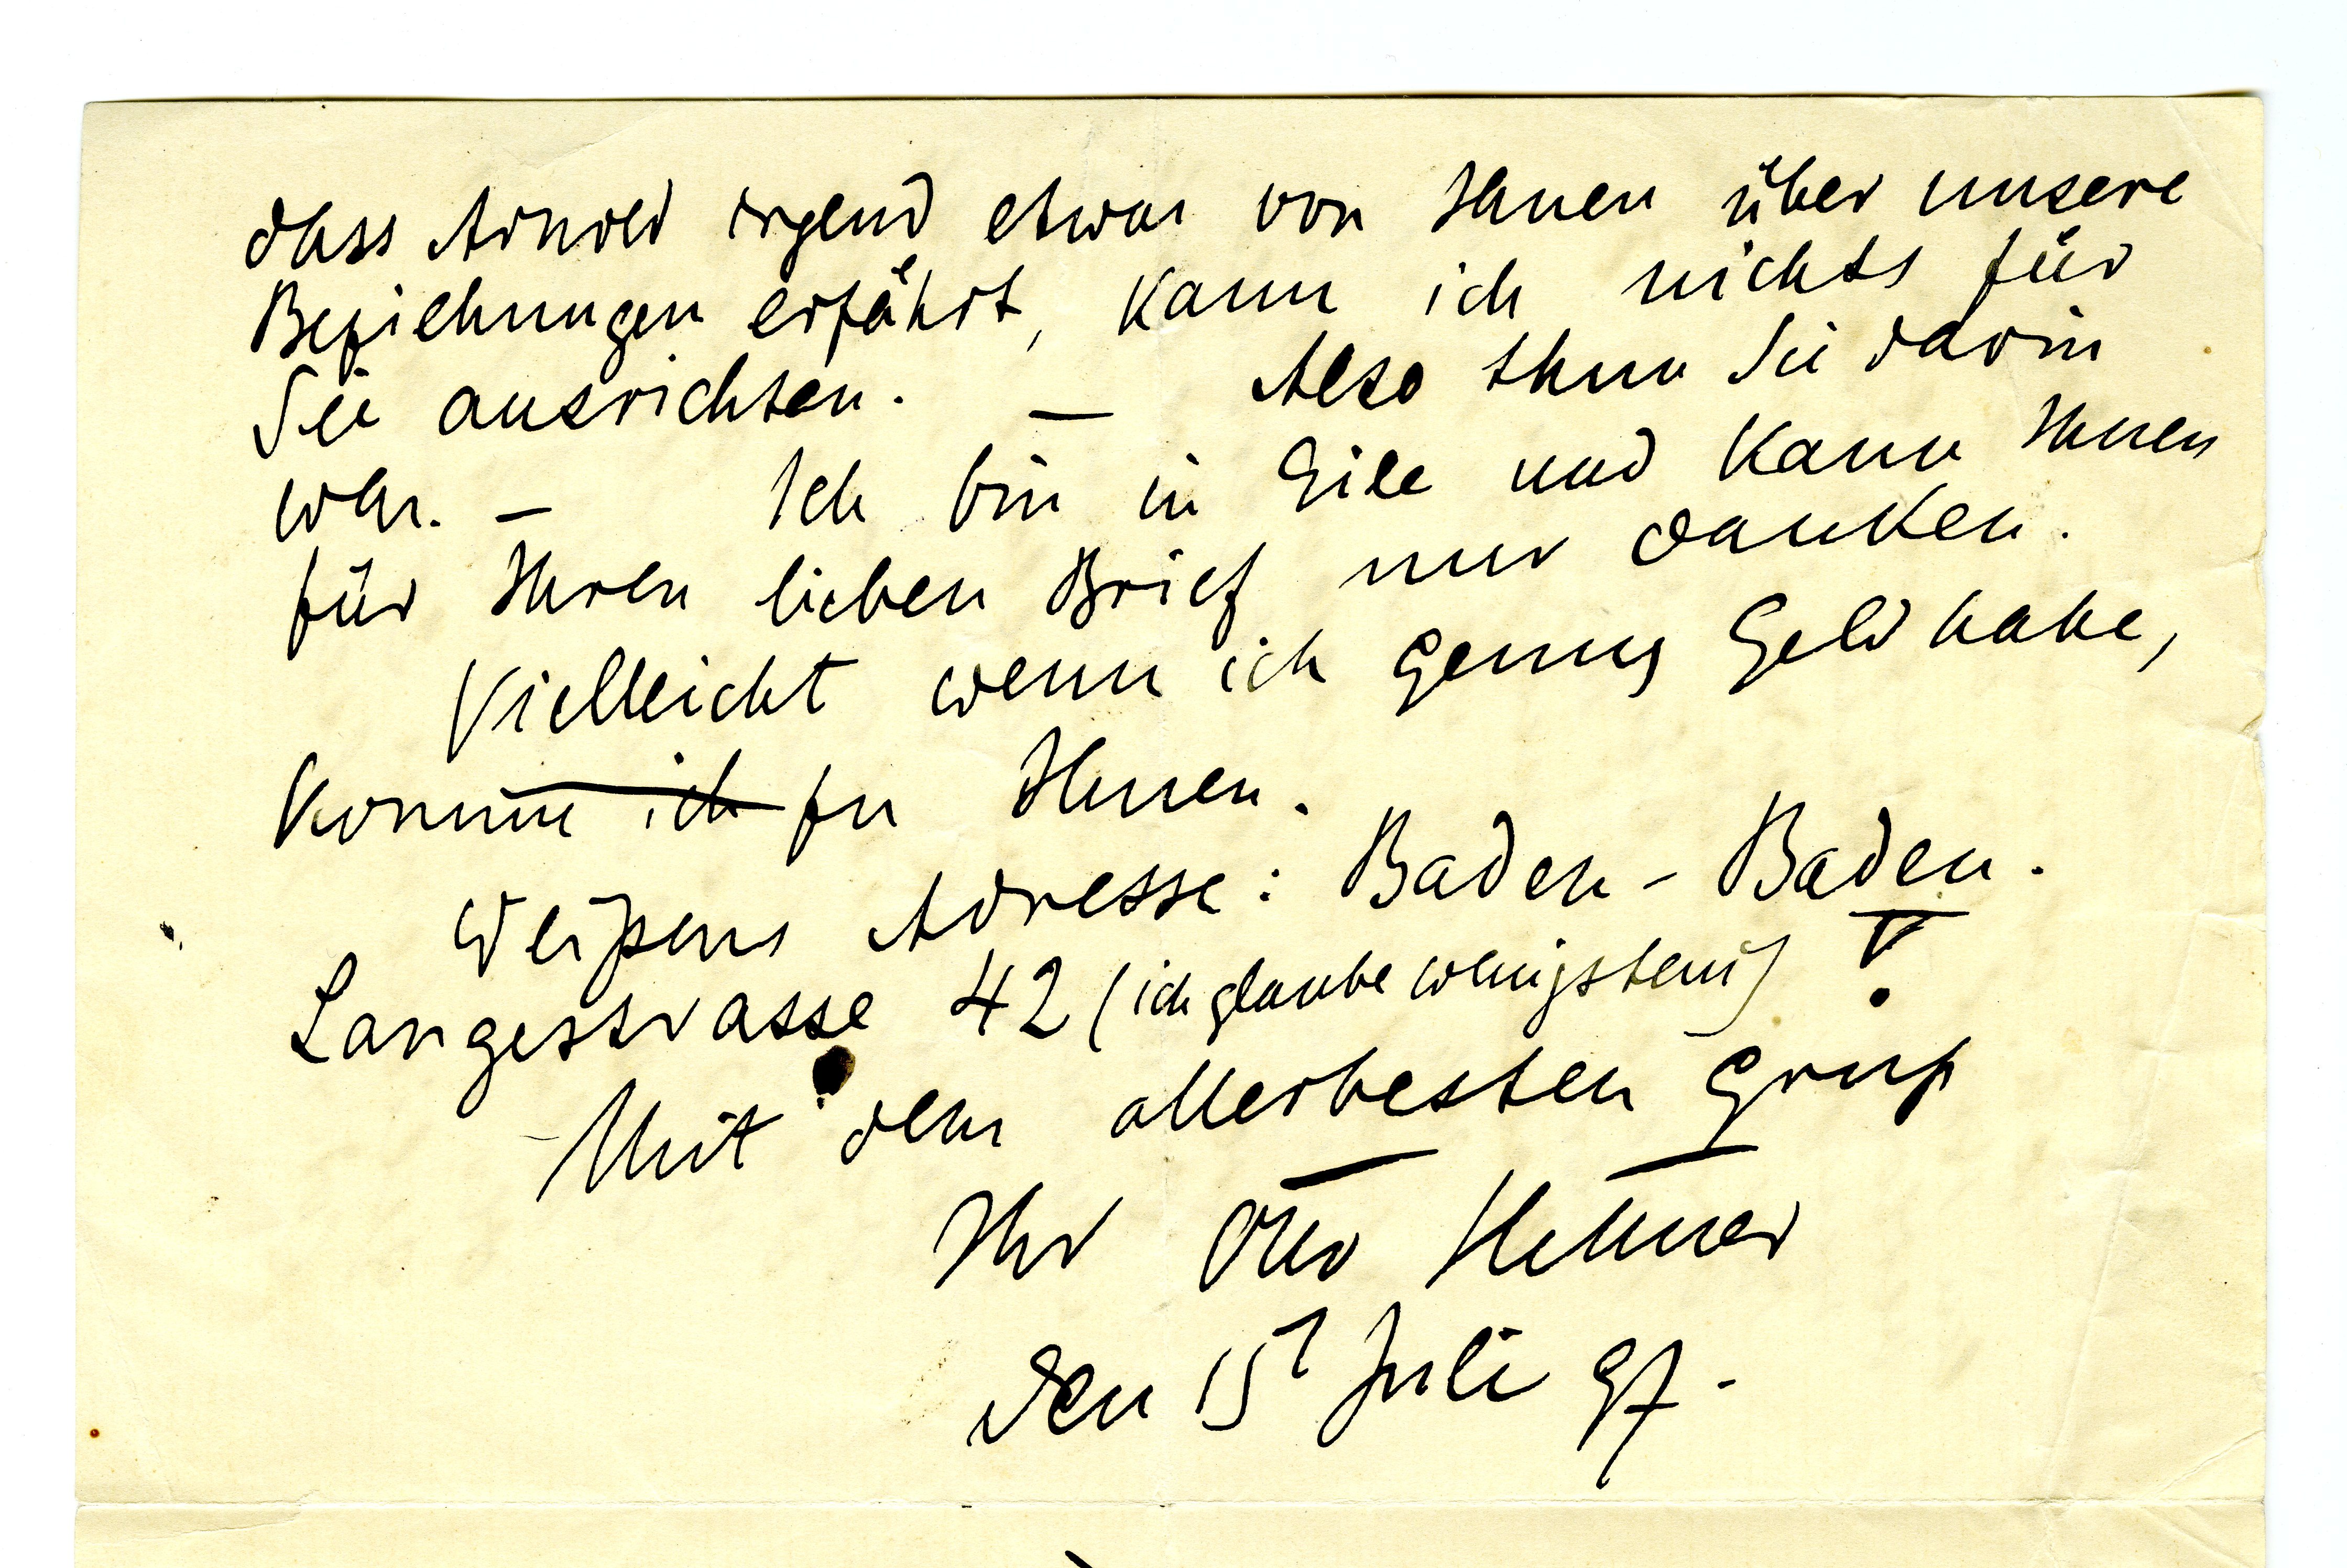 dass Arnold irgend etwas von Ihnen über unsere
Beziehungen erfährt, kann ich nichts für
Sie ausrichten. — Also thun Sie darin
was. — Ich bin in Eile und kann Ihnen
für Ihren lieben Brief nur danken.
Vielleicht wenn ich genug Geld habe,
komme ich zu Ihnen.
Adresse: Baden-Baden.
Langestrasse 42 (ich glaube wenigstens)
Mit dem allerbesten Gruß
Ihr Otto Hettner
den 15 Juli 97.